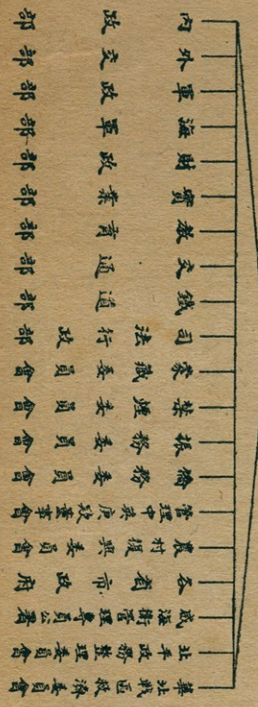 內政部
外交部
軍政部
海軍部
財政部
實業部
教育部
交通部
鐵道部
司法行政部
蒙藏委員會
禁煙委員會
振務委員會
僑務委員會
管理中英庚款董事會
農村復興委員會
各省市政府
威海衛管理專員公署
北平政務整理委員會
華北戰區救濟委員會